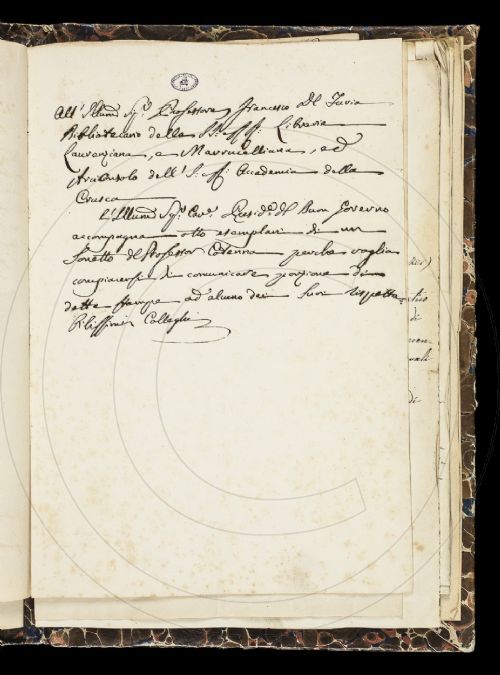 All' Illmo Sig.r Professore Francesco Del Furia
Bibliotecario delle II. e RR. Librerie
Laurenziana, e Marrucelliana, ed
Arciconsolo dell' I. e R. Accademia della
Crusca
L'Illmo Sig.r Cav.e Presid.e del Buon Governo
accompagna otto esemplari di un
Sonetto del Professor Caterina perché voglia
compiacersi di comunicare porzione di
dette stampe ad alcuno dei suoi rispetta=
bilissimi Colleghi